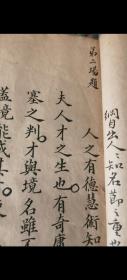 網目出人々知名節之重也
第二場題
人之有德慧術知
夫人才之生也有奇庸
塞之判才與境名雖不
蓋境能成其